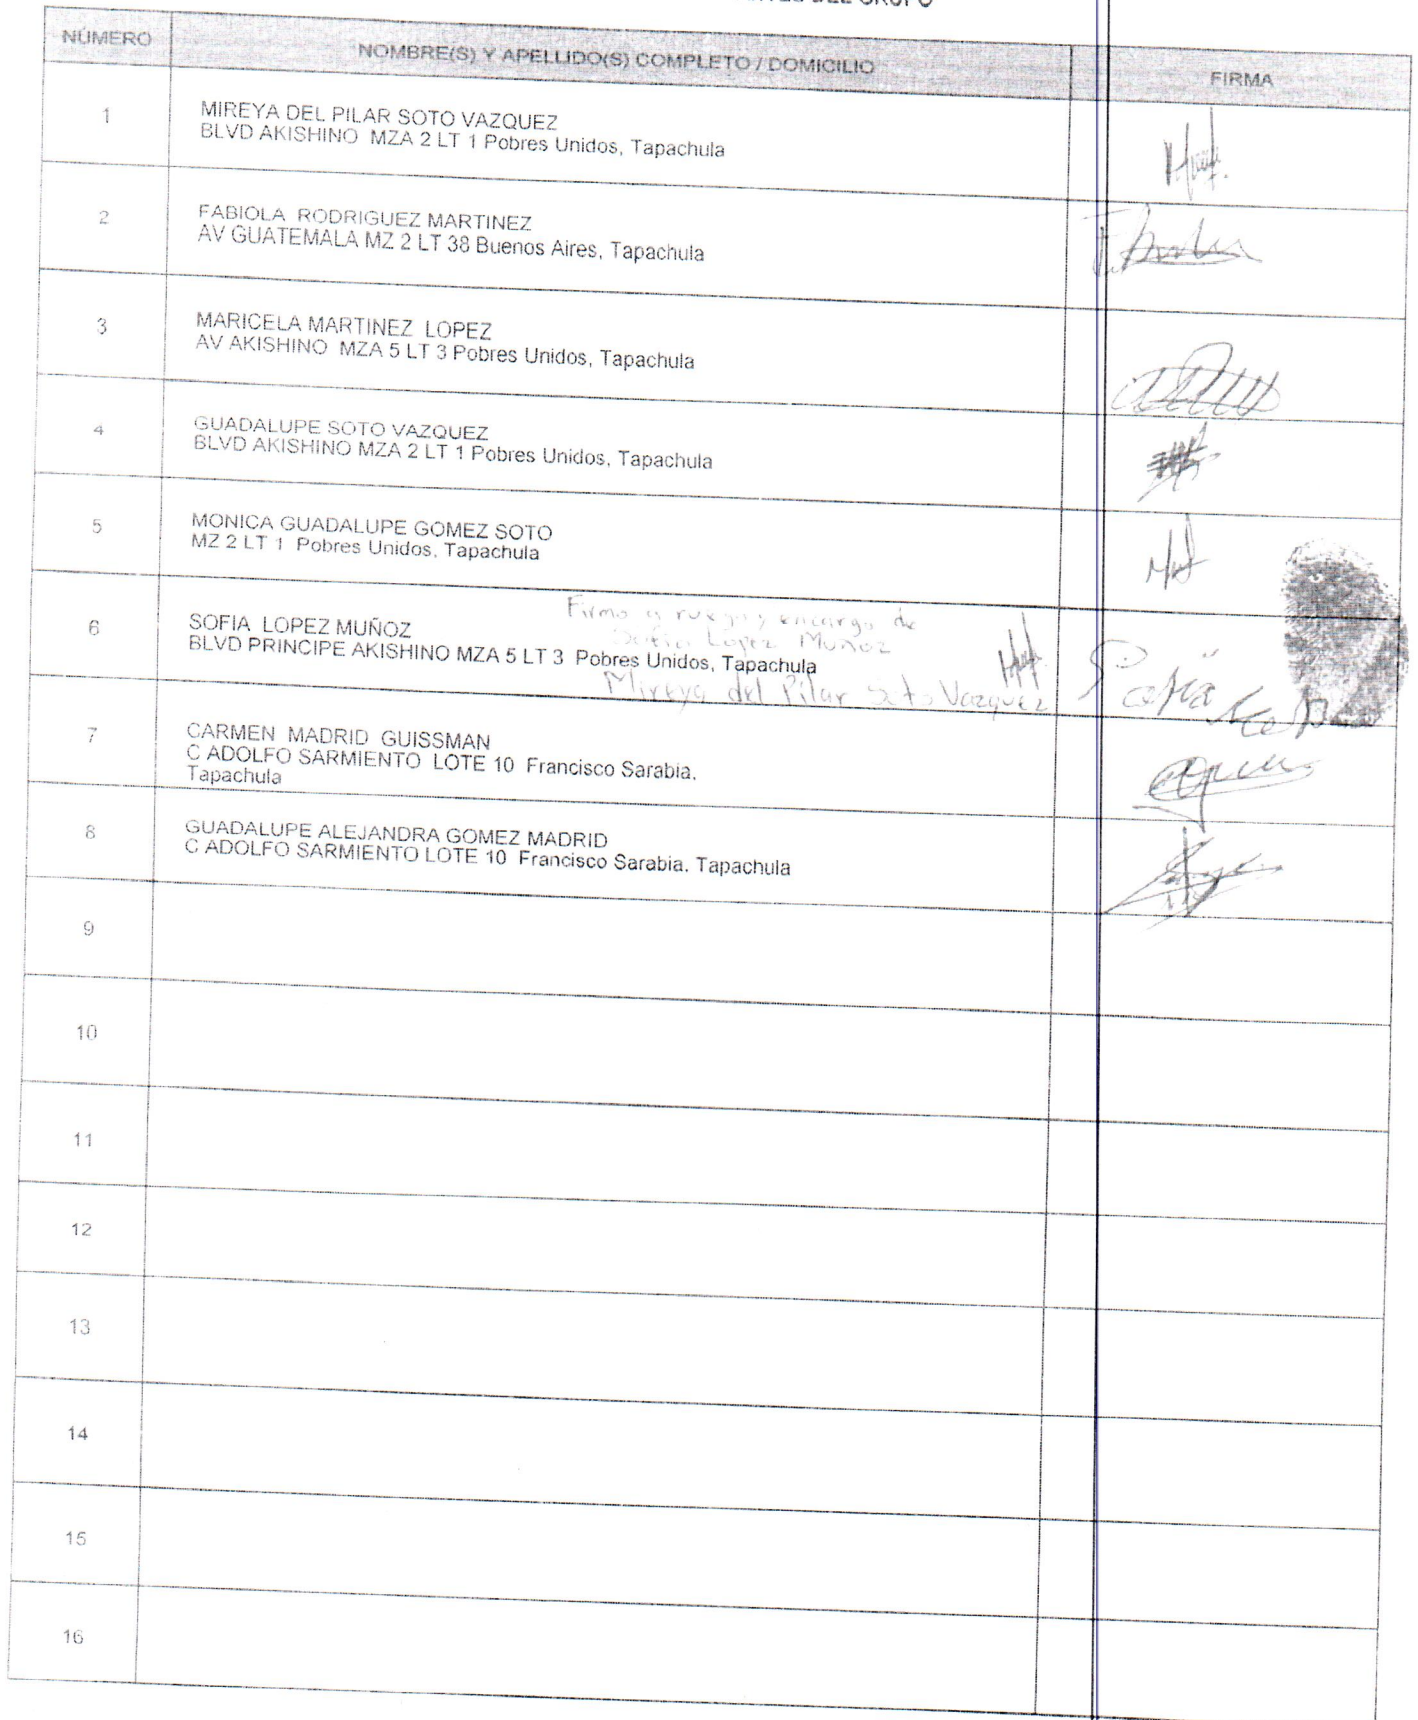 DEL GRUPO
NÚMERO NOMBRE(S) Y APELLIDO(S) COMPLETO / DOMICILIO FIRMA
1 MIREYA DEL PILAR SOTO VAZQUEZ
BLVD AKISHINO MZA 2 LT 1 Pobres Unidos, Tapachula
2 FABIOLA RODRIGUEZ MARTINEZ
AV GUATEMALA MZ 2 LT 38 Buenos Aires, Tapachula
3 MARICELA MARTINEZ LOPEZ
AV AKISHINO MZA 5 LT 3 Pobres Unidos, Tapachula
4 GUADALUPE SOTO VAZQUEZ
BLVD AKISHINO MZA 2 LT 1 Pobres Unidos, Tapachula
5 MONICA GUADALUPE GOMEZ SOTO
MZ 2 LT 1 Pobres Unidos, Tapachula
Firmo a ruego y encargo de
6 SOFIA LOPEZ MUÑOZ
Sofia López Muñoz
BLVD PRINCIPE AKISHINO MZA 5 LT 3 Pobres Unidos, Tapachula
Mireya del Pilar Soto Vazquez
7 CARMEN MADRID GUISSMAN
C ADOLFO SARMIENTO LOTE 10 Francisco Sarabia,
Tapachula
8 GUADALUPE ALEJANDRA GOMEZ MADRID
C ADOLFO SARMIENTO LOTE 10 Francisco Sarabia, Tapachula
9
10
11
12
13
14
15
16